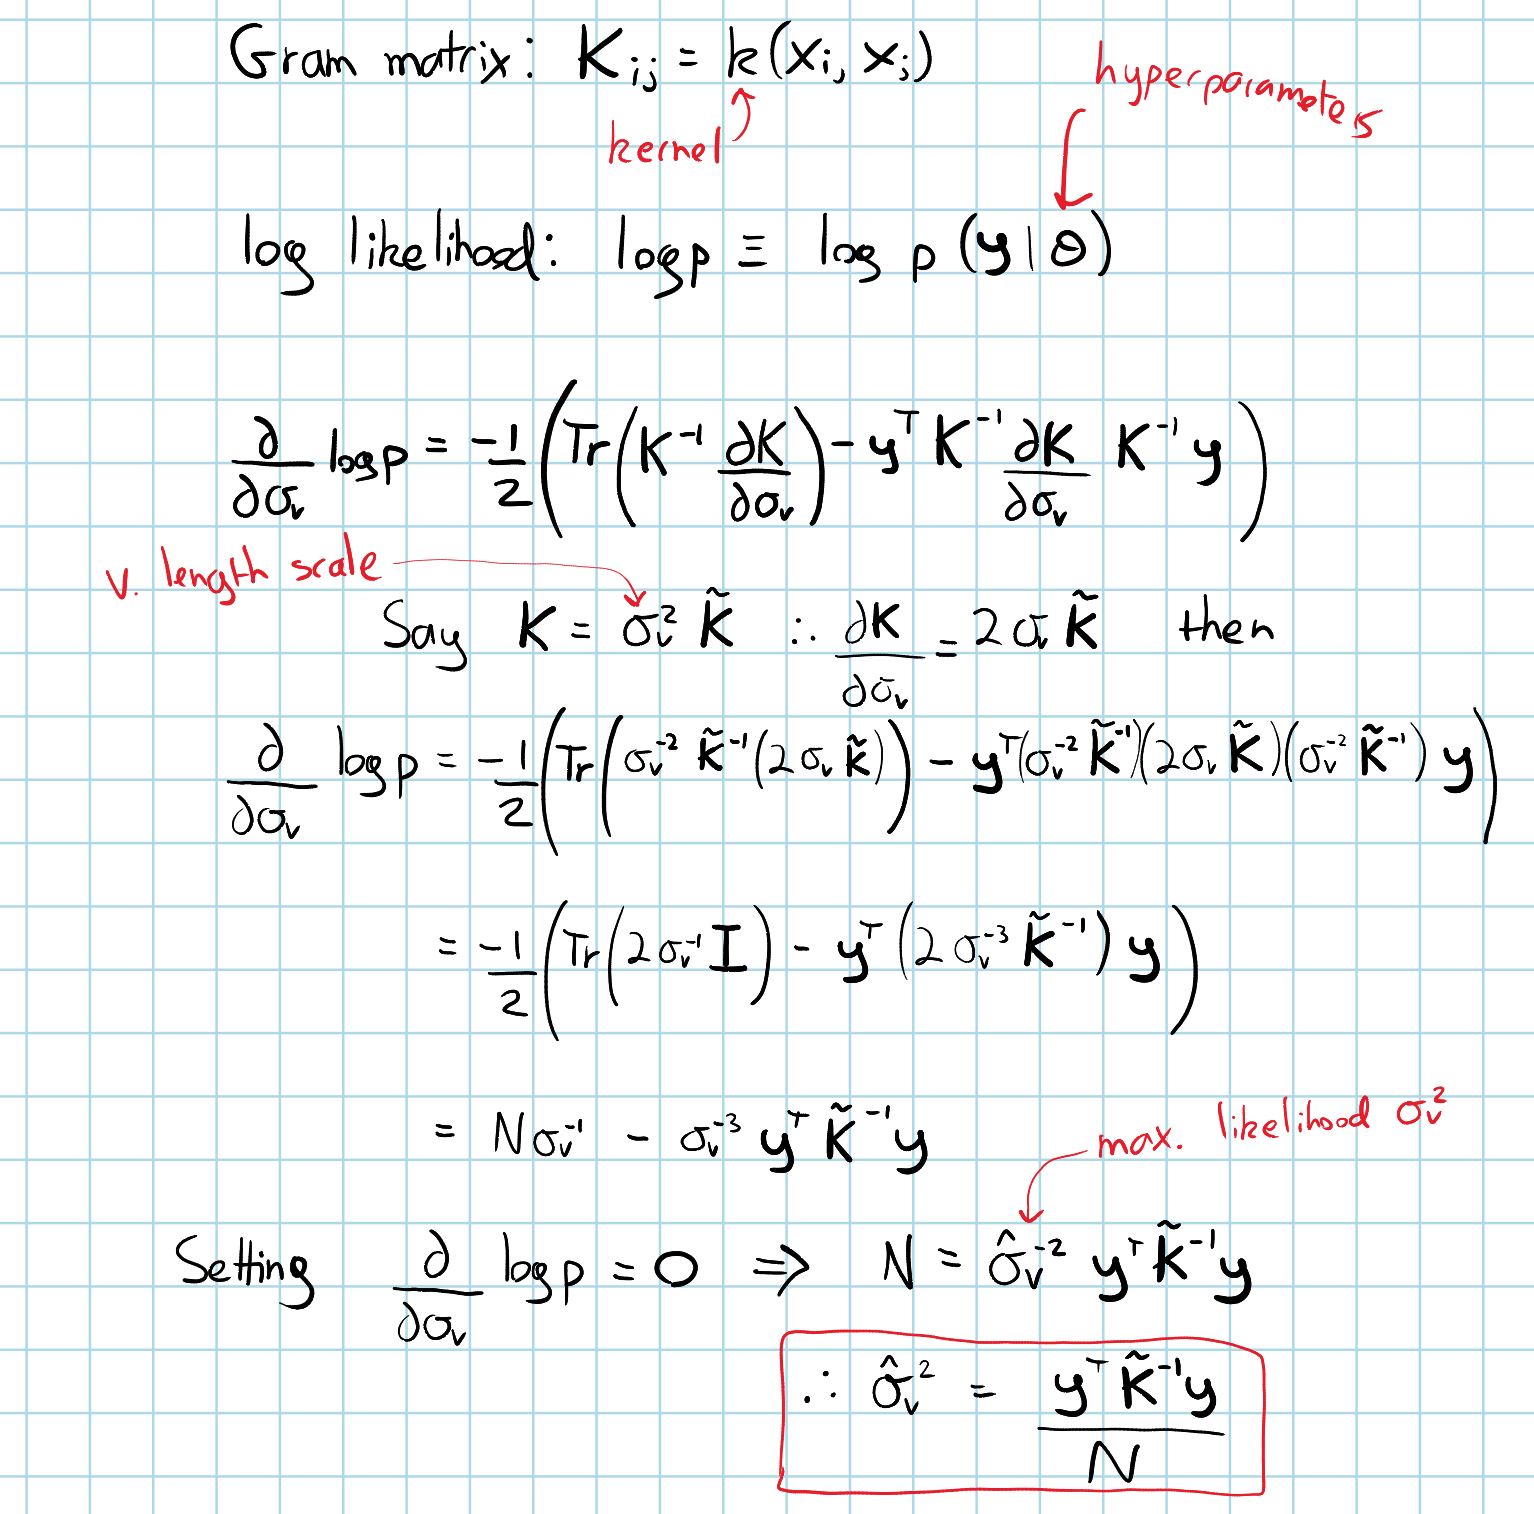 Gram matrix: K_ij = k(x_i, x_j)
kernel
hyperparameters
log likelihood: log p ≡ log p (y | θ)
∂/∂σ_v log p = -1/2 (Tr(K⁻¹ ∂K/∂σ_v) - yᵀ K⁻¹ ∂K/∂σ_v K⁻¹ y)
v. length scale
Say K = σ_v² K̃ ∴ ∂K/∂σ_v = 2σ_v K̃ then
∂/∂σ_v log p = -1/2 (Tr(σ_v⁻² K̃⁻¹ (2σ_v K̃)) - yᵀ(σ_v⁻² K̃⁻¹)(2σ_v K̃)(σ_v⁻² K̃⁻¹) y)
= -1/2 (Tr(2σ_v⁻¹ I) - yᵀ (2σ_v⁻³ K̃⁻¹) y)
= Nσ_v⁻¹ - σ_v⁻³ yᵀ K̃⁻¹ y
max. likelihood σ_v²
Setting ∂/∂σ_v log p = 0 ⇒ N = σ̂_v⁻² yᵀ K̃⁻¹ y
∴ σ̂_v² = yᵀ K̃⁻¹ y / N